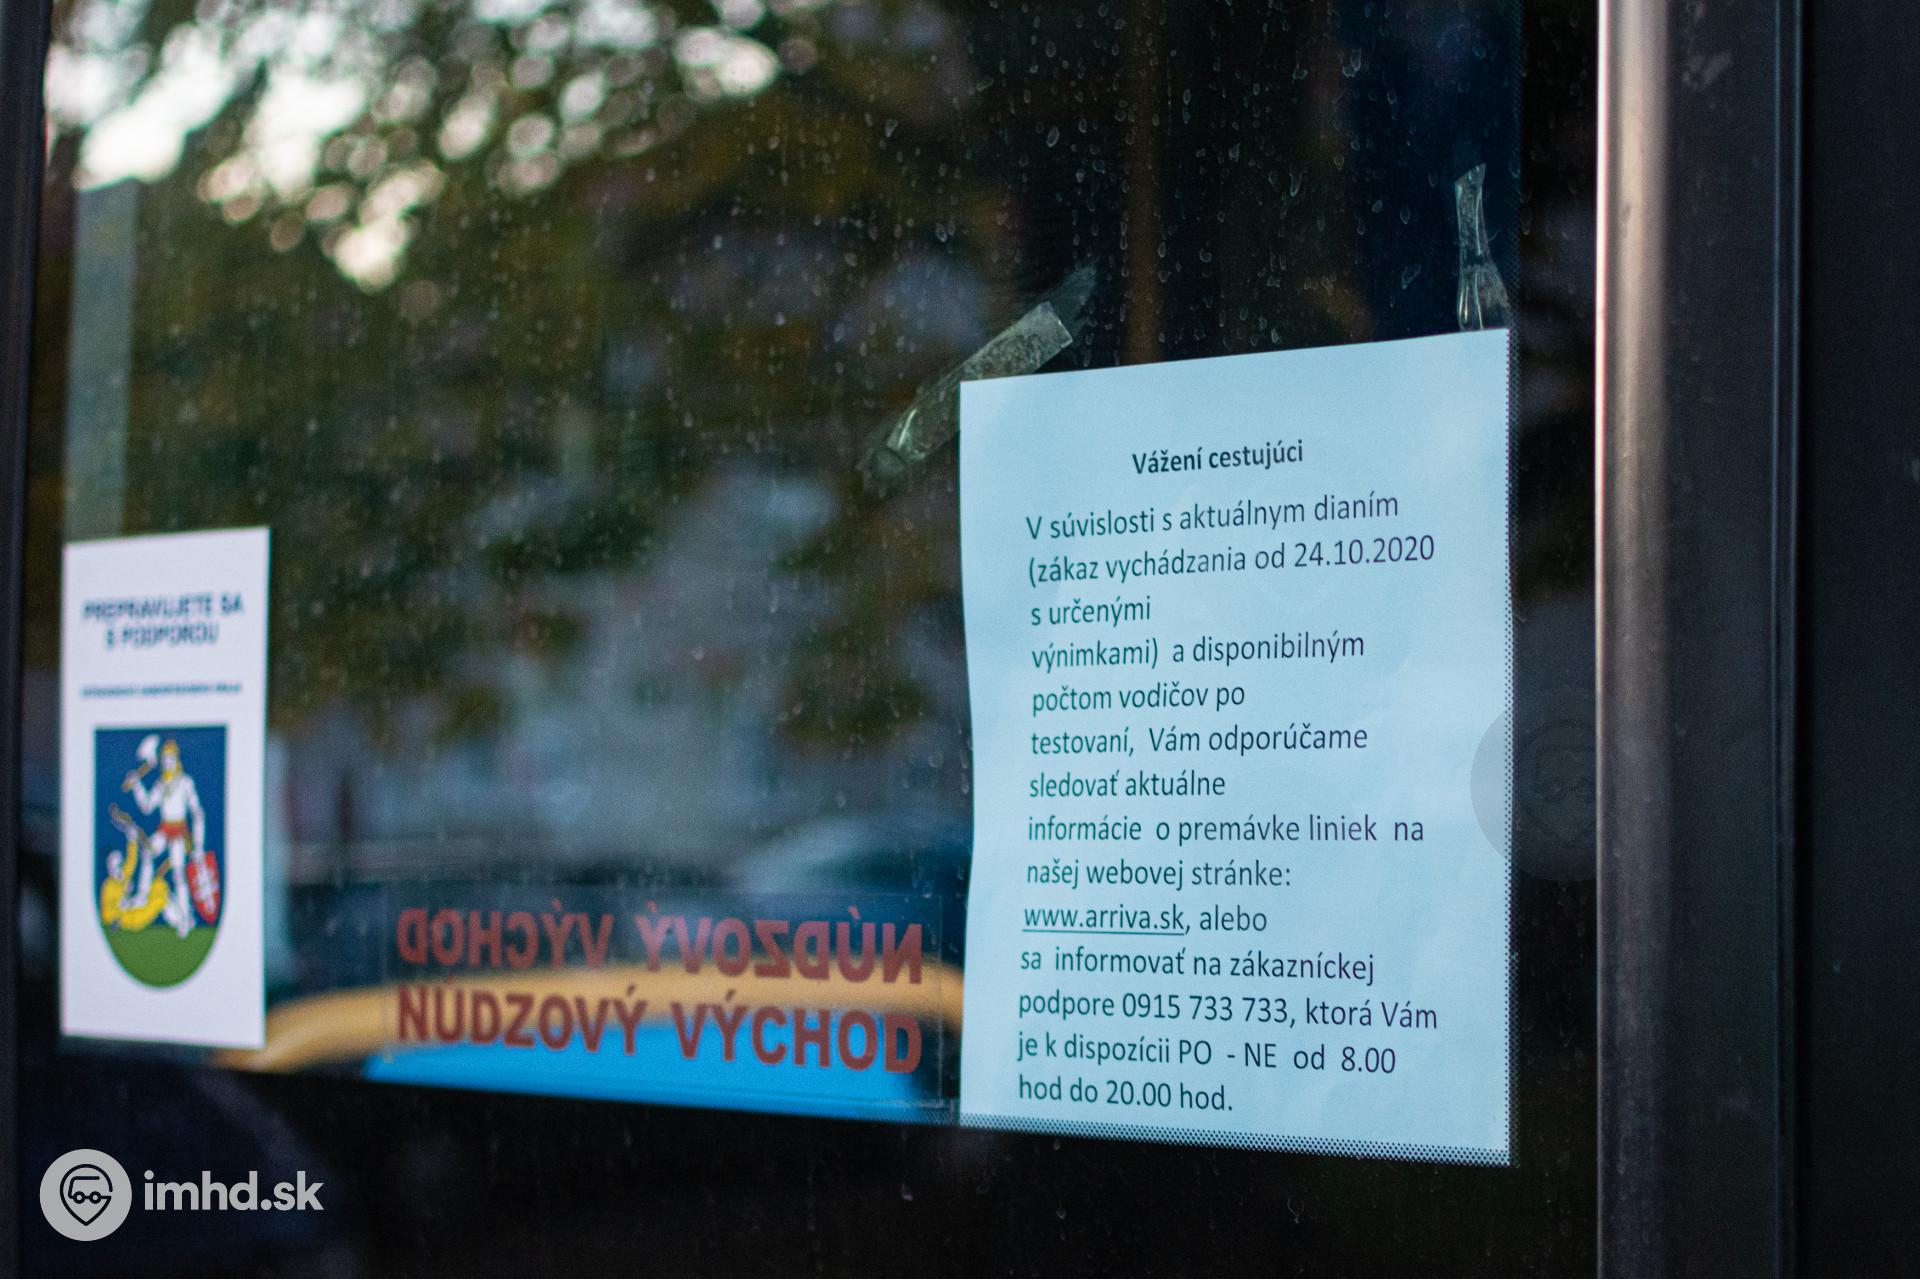 PREPRAVUJETE SA
S PODPOROU
NÚDZOVÝ VÝCHOD
NÚDZOVÝ VÝCHOD
Vážení cestujúci
V súvislosti s aktuálnym dianím
(zákaz vychádzania od 24.10.2020
s určenými
výnimkami) a disponibilným
počtom vodičov po
testovaní, Vám odporúčame
sledovať aktuálne
informácie o premávke liniek na
našej webovej stránke:
www.arriva.sk, alebo
sa informovať na zákazníckej
podpore 0915 733 733, ktorá Vám
je k dispozícii PO - NE od 8.00
hod do 20.00 hod.
imhd.sk